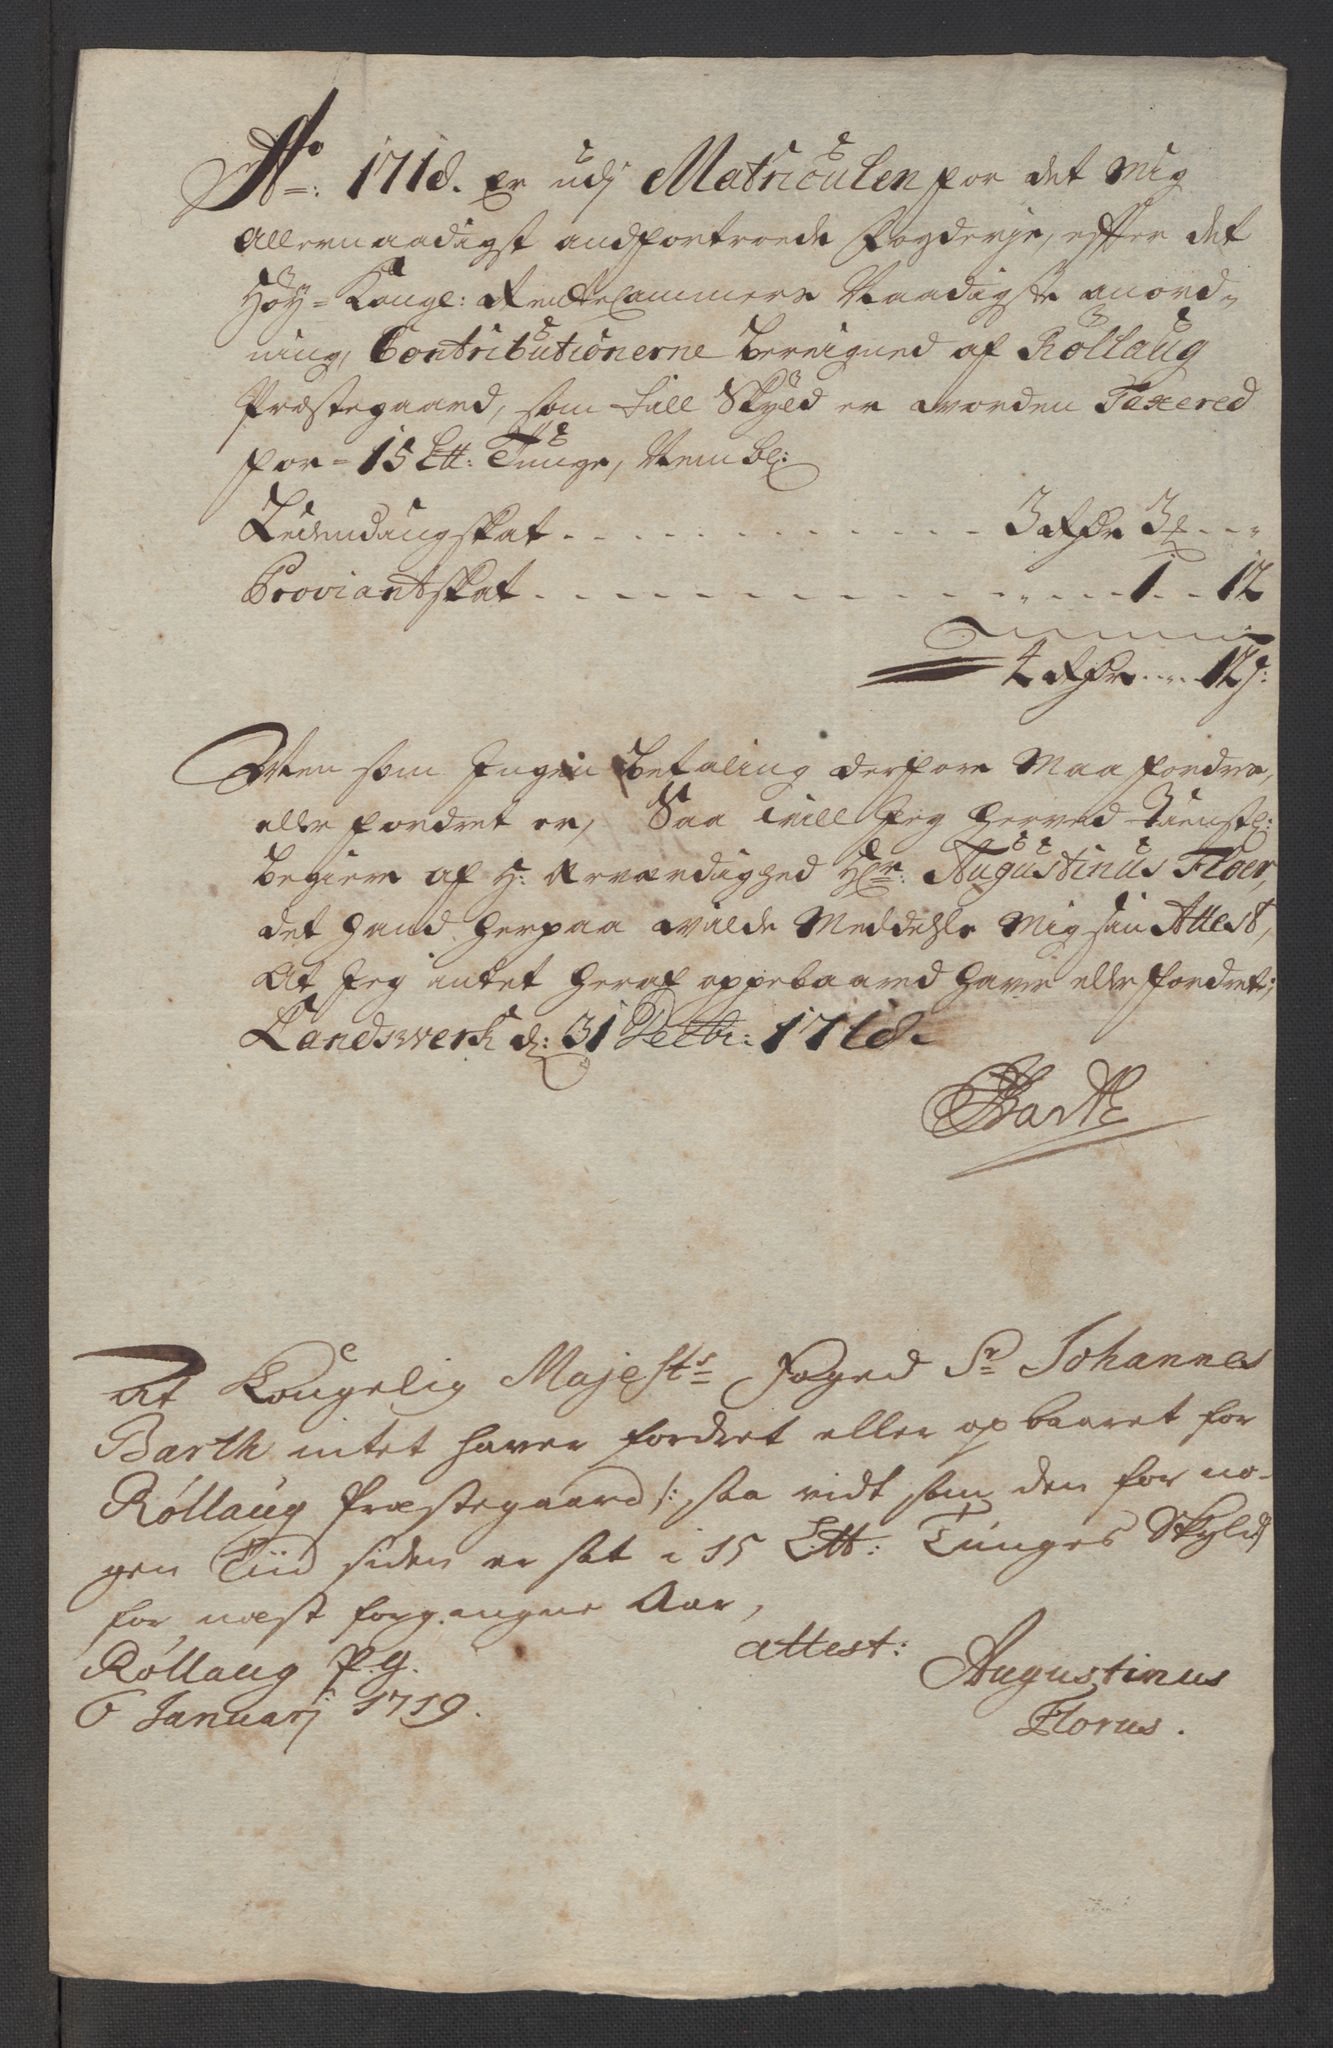 Ao: 1718. er udj Matriculen for det mig
allernaadigst andfortroede fogderje, effter det
Höy-Kongl: RenteCammers Naadigste anord-
ning, Contributionerne bereigned af Rollaug
Præstegaard, som till Skyld er worden Taxered
for - 15 Lit: Tunge, Nembl:
Ledendingskat 3 Rdr 3
Proviantskat 1 12
4 Rdr 12 s:
Men som Ingen betaling derfore maa fordres,
eller fordret er, Saa will Jeg herved tienstl:
begiere af H: Ærværdighed Hr: Augustinus Floer,
det hand herpaa wilde meddehle mig sin Attest,
At Jeg intet heraf oppebaared haver eller fordret;
Landswerk d: 31 Decbr: 1718.
Barth
At Kongelig Majests Foged Sr Johannes
Barth intet haver fordret eller opbaaret for
Røllaug Præstegaard /: saa vidt som den for no-
gen Tiid siden er sat i 15 Litt: Tunges Skyld
for næst forgangne Aar,
attest:
Røllaug P.G.
6 Januarj 1719.
Augustinus
Florus.